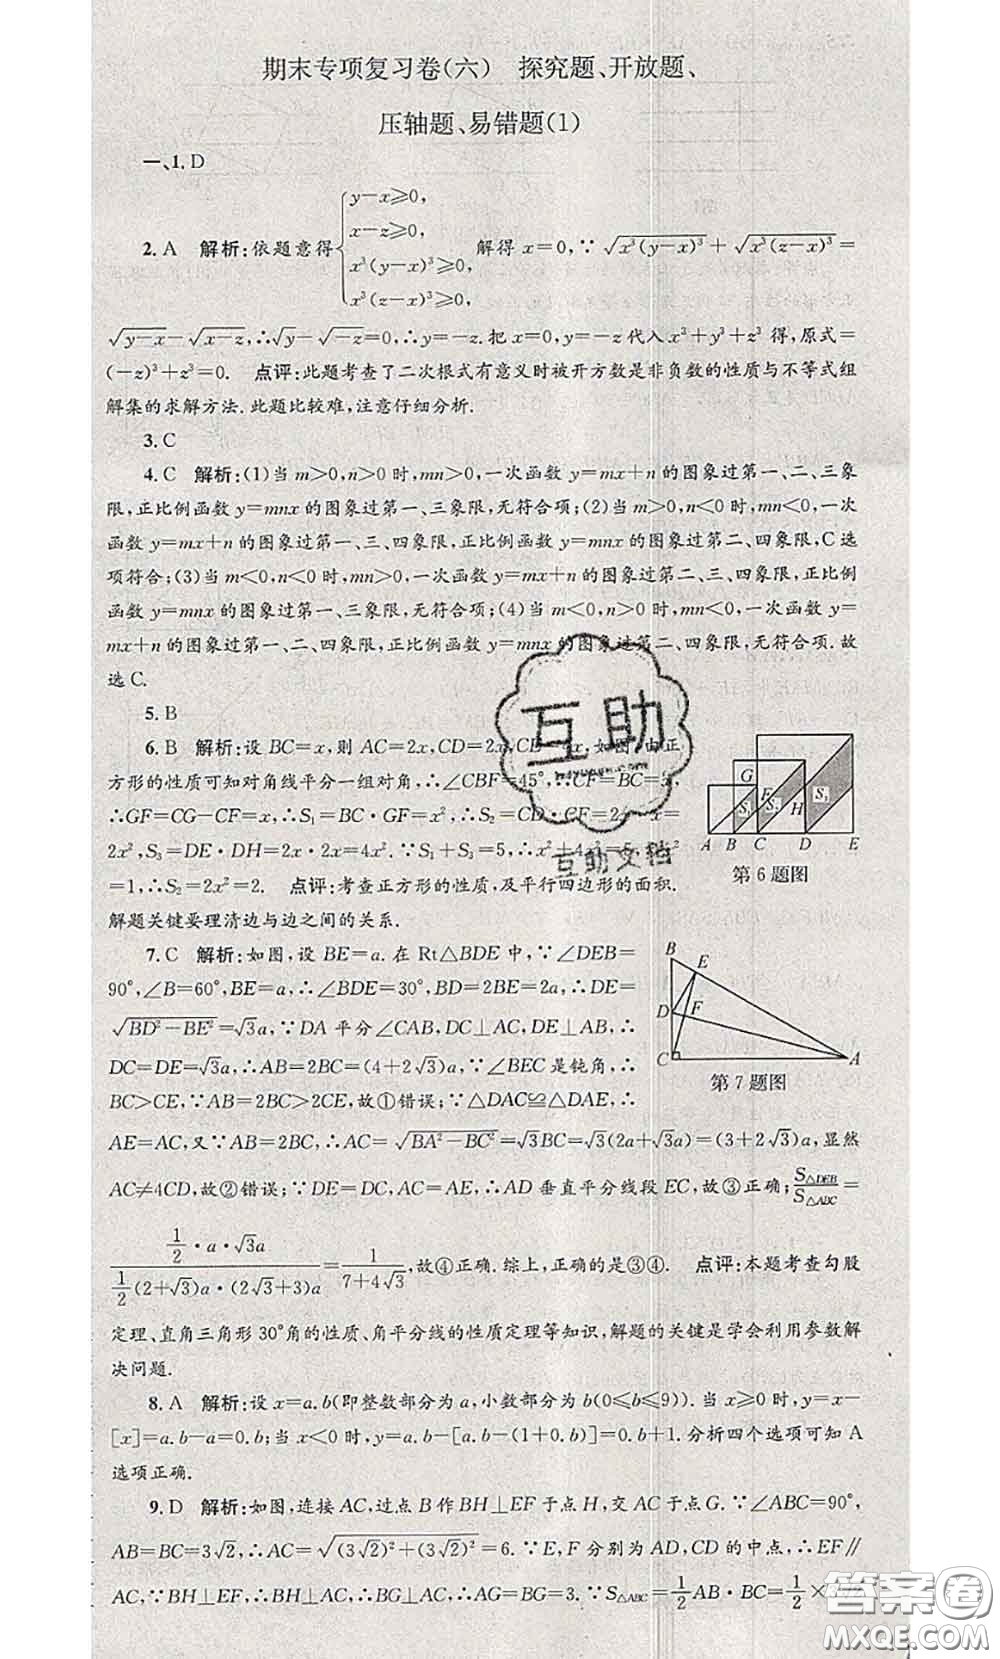 期末专项复习卷(六)　探究题、开放题、
压轴题、易错题(1)
一、1. D
2. A　解析:依题意得{y−x≥0, x−z≥0, x³(y−x)³≥0, x³(z−x)³≥0,　解得 x=0,∵√(x³(y−x)³)+√(x³(z−x)³)=
√(y−x)−√(x−z),∴√y−√(−z)=0,∴y=−z.把 x=0,y=−z 代入 x³+y³+z³ 得,原式=
(−z)³+z³=0.　点评:此题考查了二次根式有意义时被开方数是非负数的性质与不等式组
解集的求解方法.此题比较难,注意仔细分析.
3. C
4. C　解析:(1)当 m>0,n>0 时,mn>0,一次函数 y=mx+n 的图象过第一、二、三象
限,正比例函数 y=mnx 的图象过第一、三象限,无符合项;(2)当 m>0,n<0 时,mn<0,一次
函数 y=mx+n 的图象过第一、三、四象限,正比例函数 y=mnx 的图象过第二、四象限,C选
项符合;(3)当 m<0,n<0 时,mn>0,一次函数 y=mx+n 的图象过第二、三、四象限,正比例
函数 y=mnx 的图象过第一、三象限,无符合项;(4)当 m<0,n>0 时,mn<0,一次函数 y=
mx+n 的图象过第一、二、四象限,正比例函数 y=mnx 的图象过第二、四象限,无符合项.故
选C.
5. B
6. B　解析:设 BC=x,则 AC=2x,CD=2x,如图,由正
方形的性质可知对角线平分一组对角,∴∠CBF=45°,∴CF=BC=
∴GF=CG−CF=x,∴S₁=BC·GF=x²,∴S₂=CD·CF=2x·x=
2x²,S₃=DE·DH=2x·2x=4x².∵S₁+S₃=5,∴x²+4x²=5,∴x²
=1,∴S₂=2x²=2.　点评:考查正方形的性质,及平行四边形的面积.
解题关键要理清边与边之间的关系.
G F H S₁ S₂ S₃
A B C D E
第6题图
7. C　解析:如图,设 BE=a.在 Rt△BDE 中,∵∠DEB=
90°,∠B=60°,BE=a,∴∠BDE=30°,BD=2BE=2a,∴DE=
√(BD²−BE²)=√3a,∵DA 平分∠CAB,DC⊥AC,DE⊥AB,∴
DC=DE=√3a,∴AB=2BC=(4+2√3)a,∵∠BEC 是钝角,∴
BC>CE,∵AB=2BC>2CE,故①错误;∵△DAC≌△DAE,∴
B E D F C A
第7题图
AE=AC,又∵AB=2BC,∴AC=√(BA²−BC²)=√3BC=√3(2a+√3a)=(3+2√3)a,显然
AC≠4CD,故②错误;∵DE=DC,AC=AE,∴AD 垂直平分线段 EC,故③正确;S△DEB/S△ABC=
(1/2·a·√3a)/(1/2(2+√3)a·(2√3+3)a)=1/(7+4√3),故④正确.综上,正确的是③④.　点评:本题考查勾股
定理、直角三角形30°角的性质、角平分线的性质定理等知识,解题的关键是学会利用参数解
决问题.
8. A　解析:设 x=a.b(即整数部分为 a,小数部分为 b(0≤b≤9)).当 x≥0 时,y=x−
[x]=a.b−a=0.b;当 x<0 时,y=a.b−[a.b−(1+0.b)]=0.b+1.分析四个选项可知A
选项正确.
9. D　解析:如图,连接 AC,过点 B 作 BH⊥EF 于点 H,交 AC 于点 G.∵∠ABC=90°,
AB=BC=3√2,∴AC=√((3√2)²+(3√2)²)=6.∵E,F 分别为 AD,CD 的中点,∴EF∥
AC,∵BH⊥EF,∴BH⊥AC,∴BG⊥AC,∴AG=BG=3.∵S△ABC=1/2 AB·BC=1/2×
互助
互助文档
答案圈
MXQE.COM